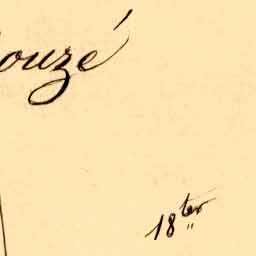 ouzé
18ter